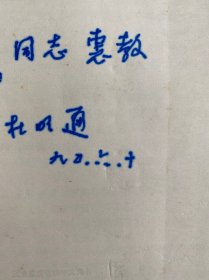 同志惠教
杜明通
九〇.六.十